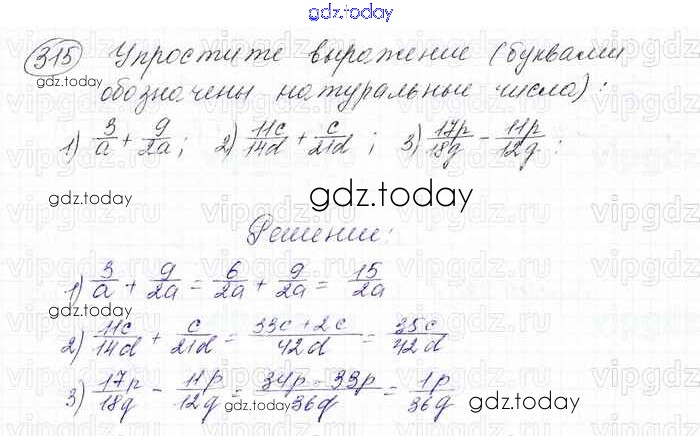 gdz.today
315 Упростите выражение (буквами
обозначены натуральные числа):
gdz.today
1) 3/a + 9/2a; 2) 11c/14d + c/21d; 3) 17p/18g - 11p/12g:
gdz.today
gdz.today
Решение:
1) 3/a + 9/2a = 6/2a + 9/2a = 15/2a
gdz.today
2) 11c/14d + c/21d = 33c + 2c/42d = 35c/42d
3) 17p/18g - 11p/12g = 34p - 33p/36g = 1p/36g
gdz.today
gdz.today